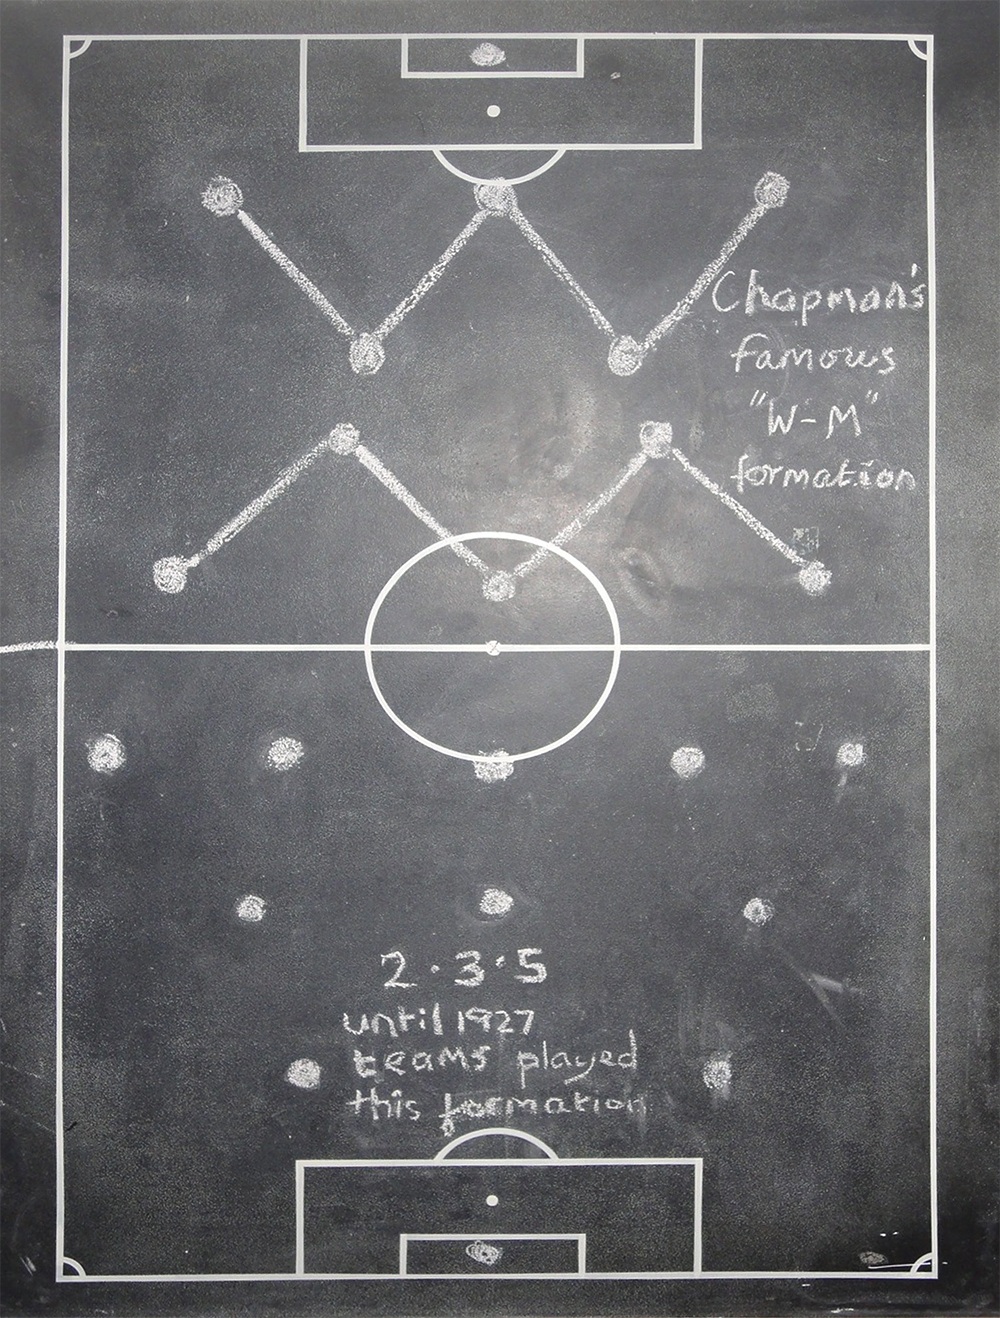 Chapman's
famous
"W-M"
formation
2·3·5
until 1927
teams played
this formation